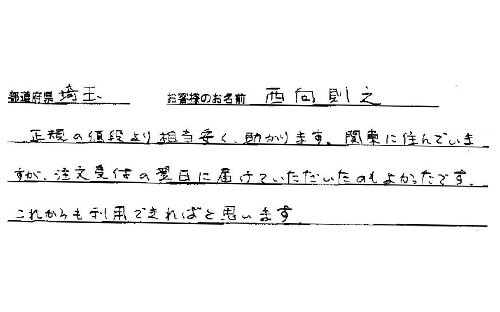 都道府県 埼玉 お客様のお名前 西向則之
正規の値段より相当安く、助かります。関東に住んでいま
すが、注文受付の翌日に届けていただいたのもよかったです。
これからも利用できればと思います。